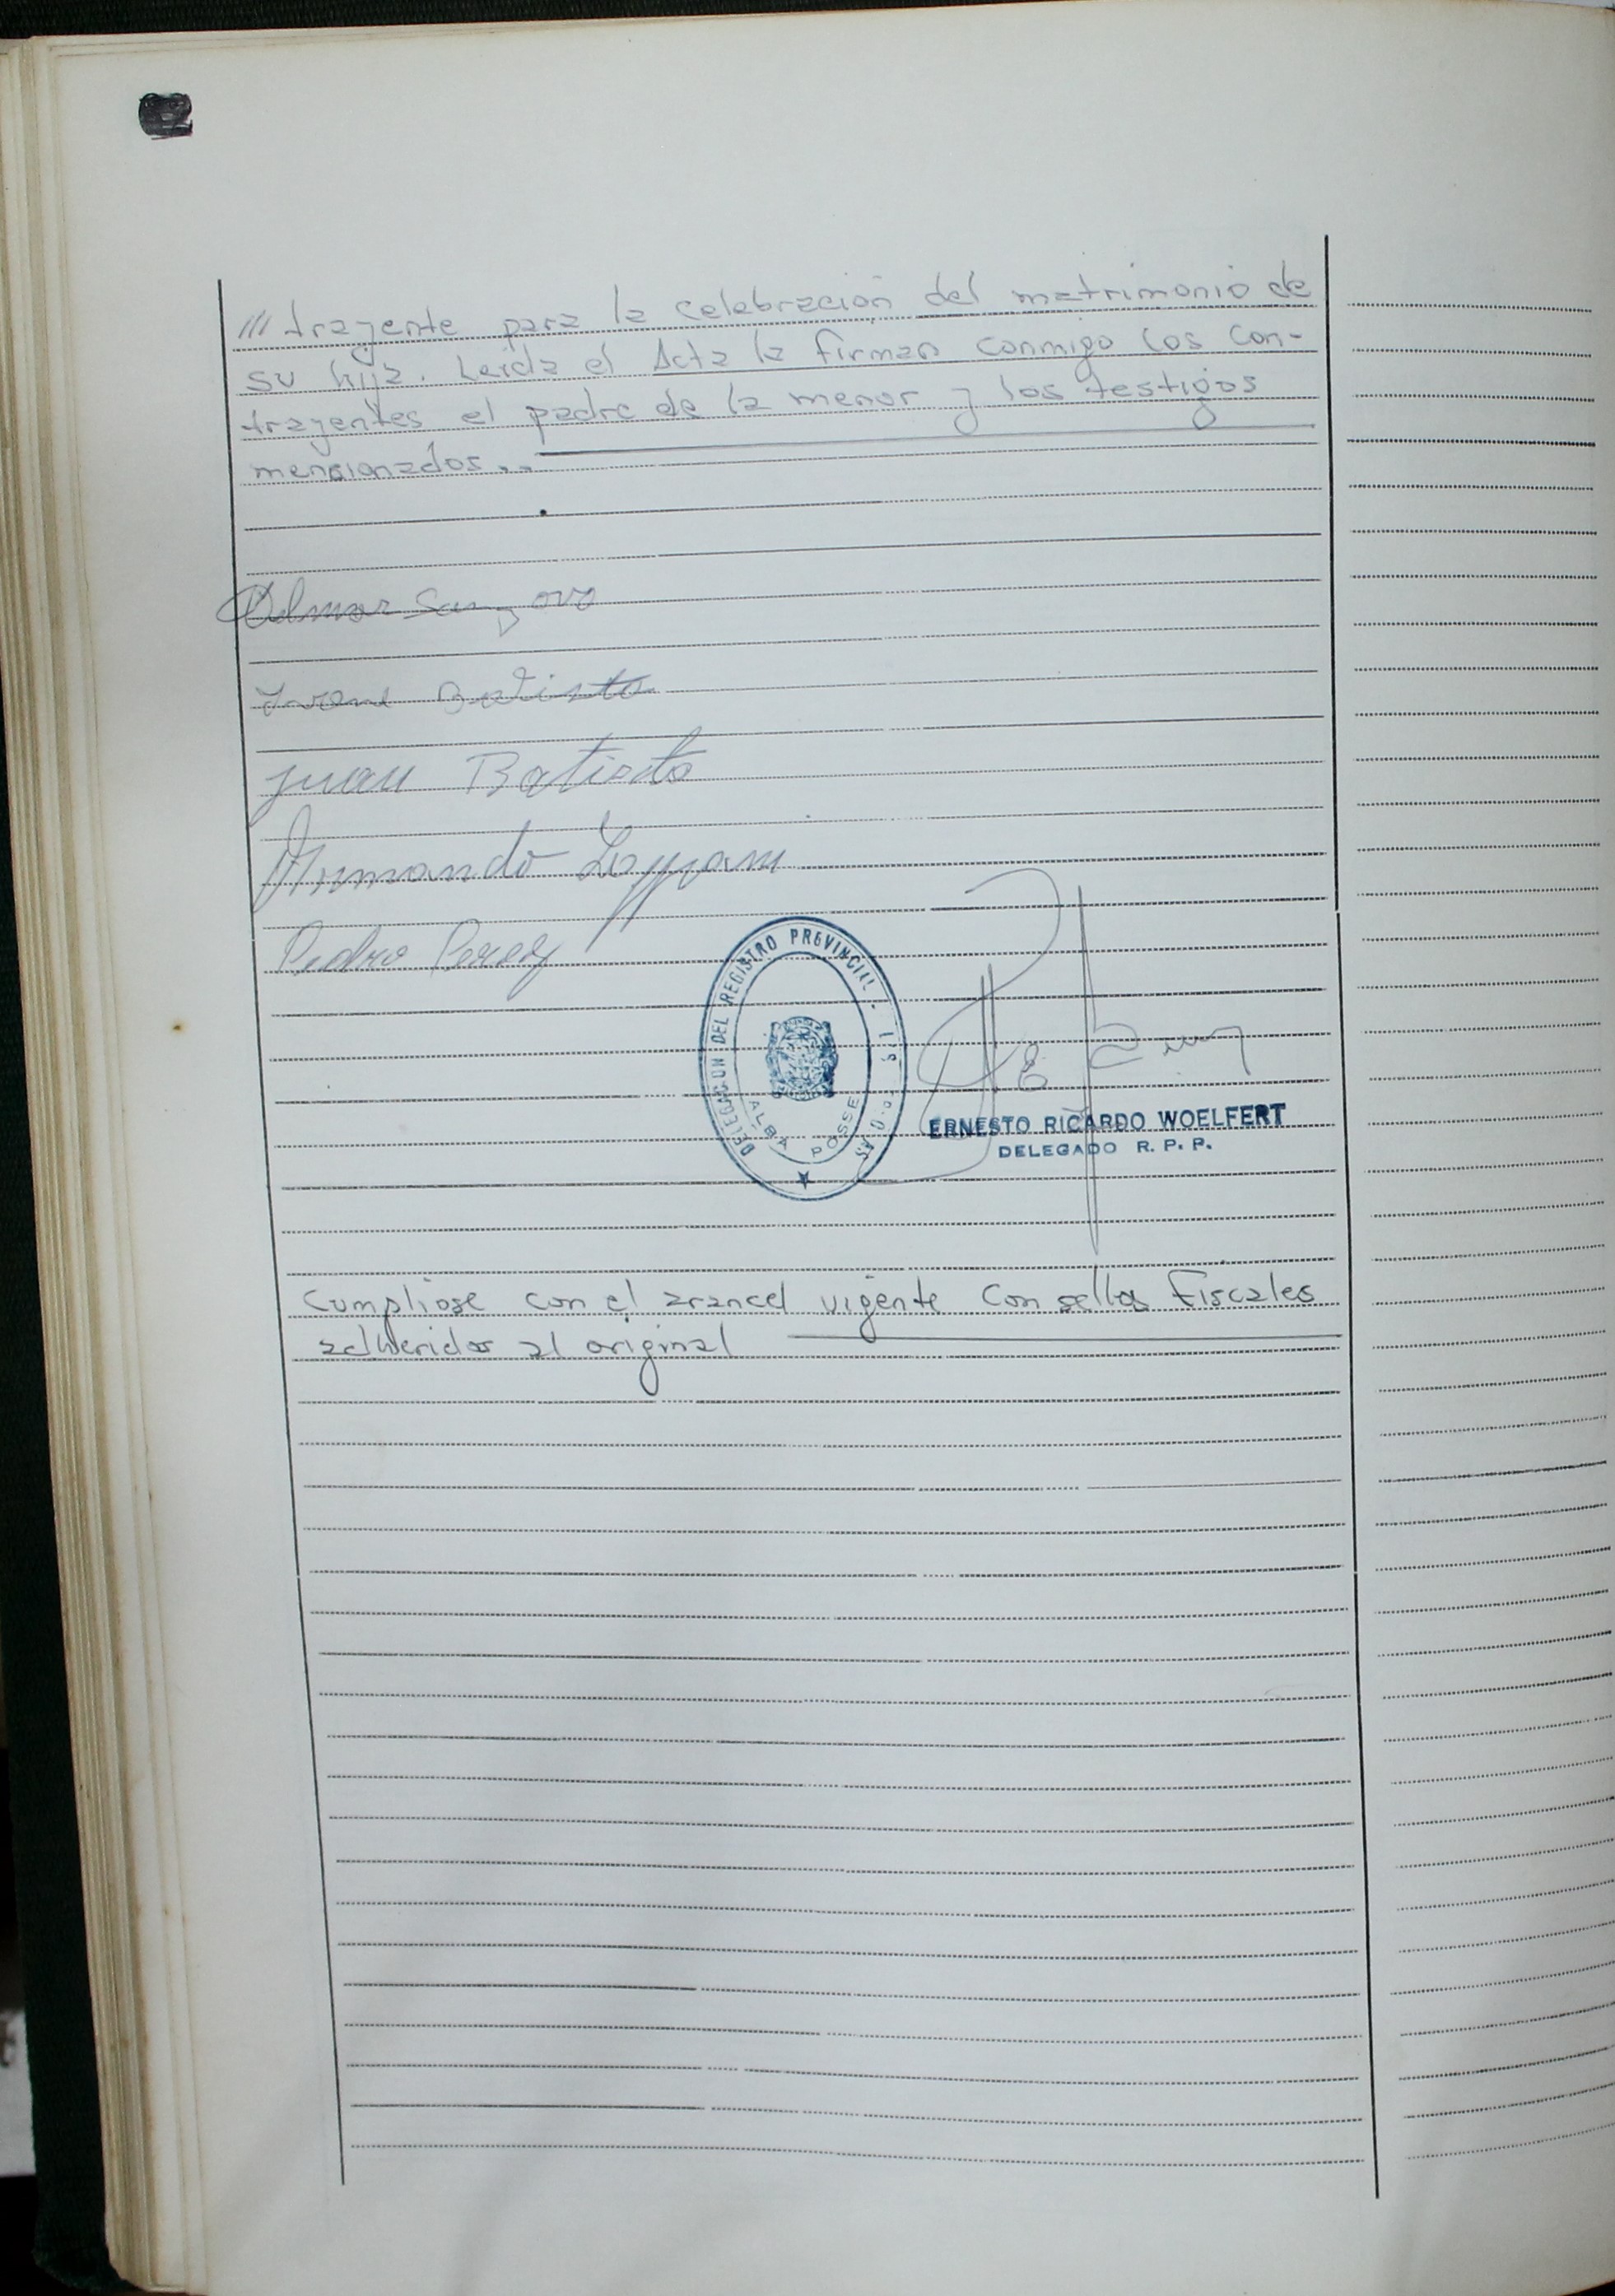 /// trayente para la celebración del matrimonio de
su hija. Leida el Acta la firman conmigo los con-
trayentes el padre de la menor y los testigos
mencionados..
Juan Batista
Armando
Pedro
DELEGACION DEL REGISTRO PROVINCIAL
ALBA POSSE
ERNESTO RICARDO WOELFERT
DELEGADO R. P. P.
Cumpliose con el arancel vigente con sellos fiscales
adheridos al original